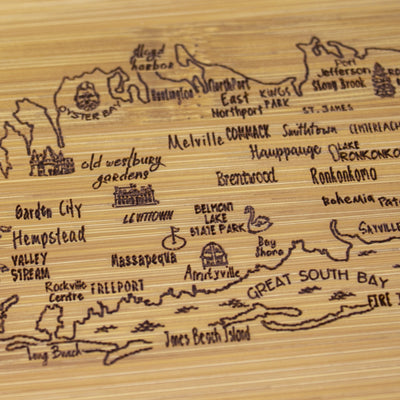 lloyd
harbor
Huntington
Northport
East
Northport
KINGS
PARK
Port
Jefferson
Stony Brook
ST. JAMES
OYSTER BAY
Melville
COMMACK
Smithtown
CENTEREACH
Hauppauge
LAKE
RONKONKO
old westbury
gardens
Brentwood
Ronkonkoma
Garden City
LEVITTOWN
BELMONT
LAKE
STATE PARK
Bohemia
Pat
Hempstead
Bay
Shore
SAYVILLE
VALLEY
STREAM
Massapequa
Amityville
Rockville
Centre
FREEPORT
GREAT SOUTH BAY
FIRE
Long Beach
Jones Beach Island